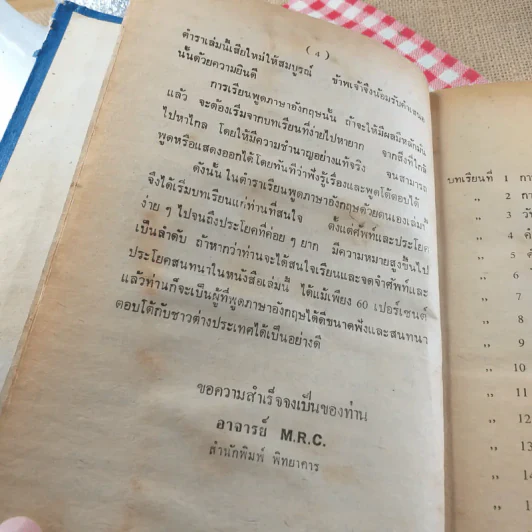 ( 4 )
ตำราเล่มนี้เสียใหม่ให้สมบูรณ์ ข้าพเจ้าจึงน้อมรับคำเสนอ
นั้นด้วยความยินดี
การเรียนพูดภาษาอังกฤษนั้น ถ้าจะให้มีผลมีหลักมั่น
แล้ว จะต้องเริ่มจากบทเรียนที่ง่ายไปหายาก จากสิ่งที่ใกล้
ไปหาไกล โดยให้มีความชำนาญอย่างแท้จริง จนสามารถ
พูดหรือแสดงออกได้โดยทันทีว่าฟังรู้เรื่องและพูดโต้ตอบได้
ดังนั้น ในตำราเรียนพูดภาษาอังกฤษด้วยตนเองเล่มนี้
จึงได้เริ่มบทเรียนแก่ท่านที่สนใจ ตั้งแต่ศัพท์และประโยค
ง่าย ๆ ไปจนถึงประโยคที่ค่อย ๆ ยาก มีความหมายสูงขึ้นไป
เป็นลำดับ ถ้าหากว่าท่านจะได้สนใจเรียนและจดจำศัพท์และ
ประโยคสนทนาในหนังสือเล่มนี้ ได้แม้เพียง 60 เปอร์เซนต์
แล้วท่านก็จะเป็นผู้ที่พูดภาษาอังกฤษได้ดีขนาดฟังและสนทนา
ตอบโต้กับชาวต่างประเทศได้เป็นอย่างดี
ขอความสำเร็จจงเป็นของท่าน
อาจารย์ M.R.C.
สำนักพิมพ์ พิทยาคาร
บทเรียนที่ 1
,, 2
,, 3
,, 4
,, 5
,, 6
,, 7
,, 8
,, 9
,, 10
,, 11
,, 12
,, 13